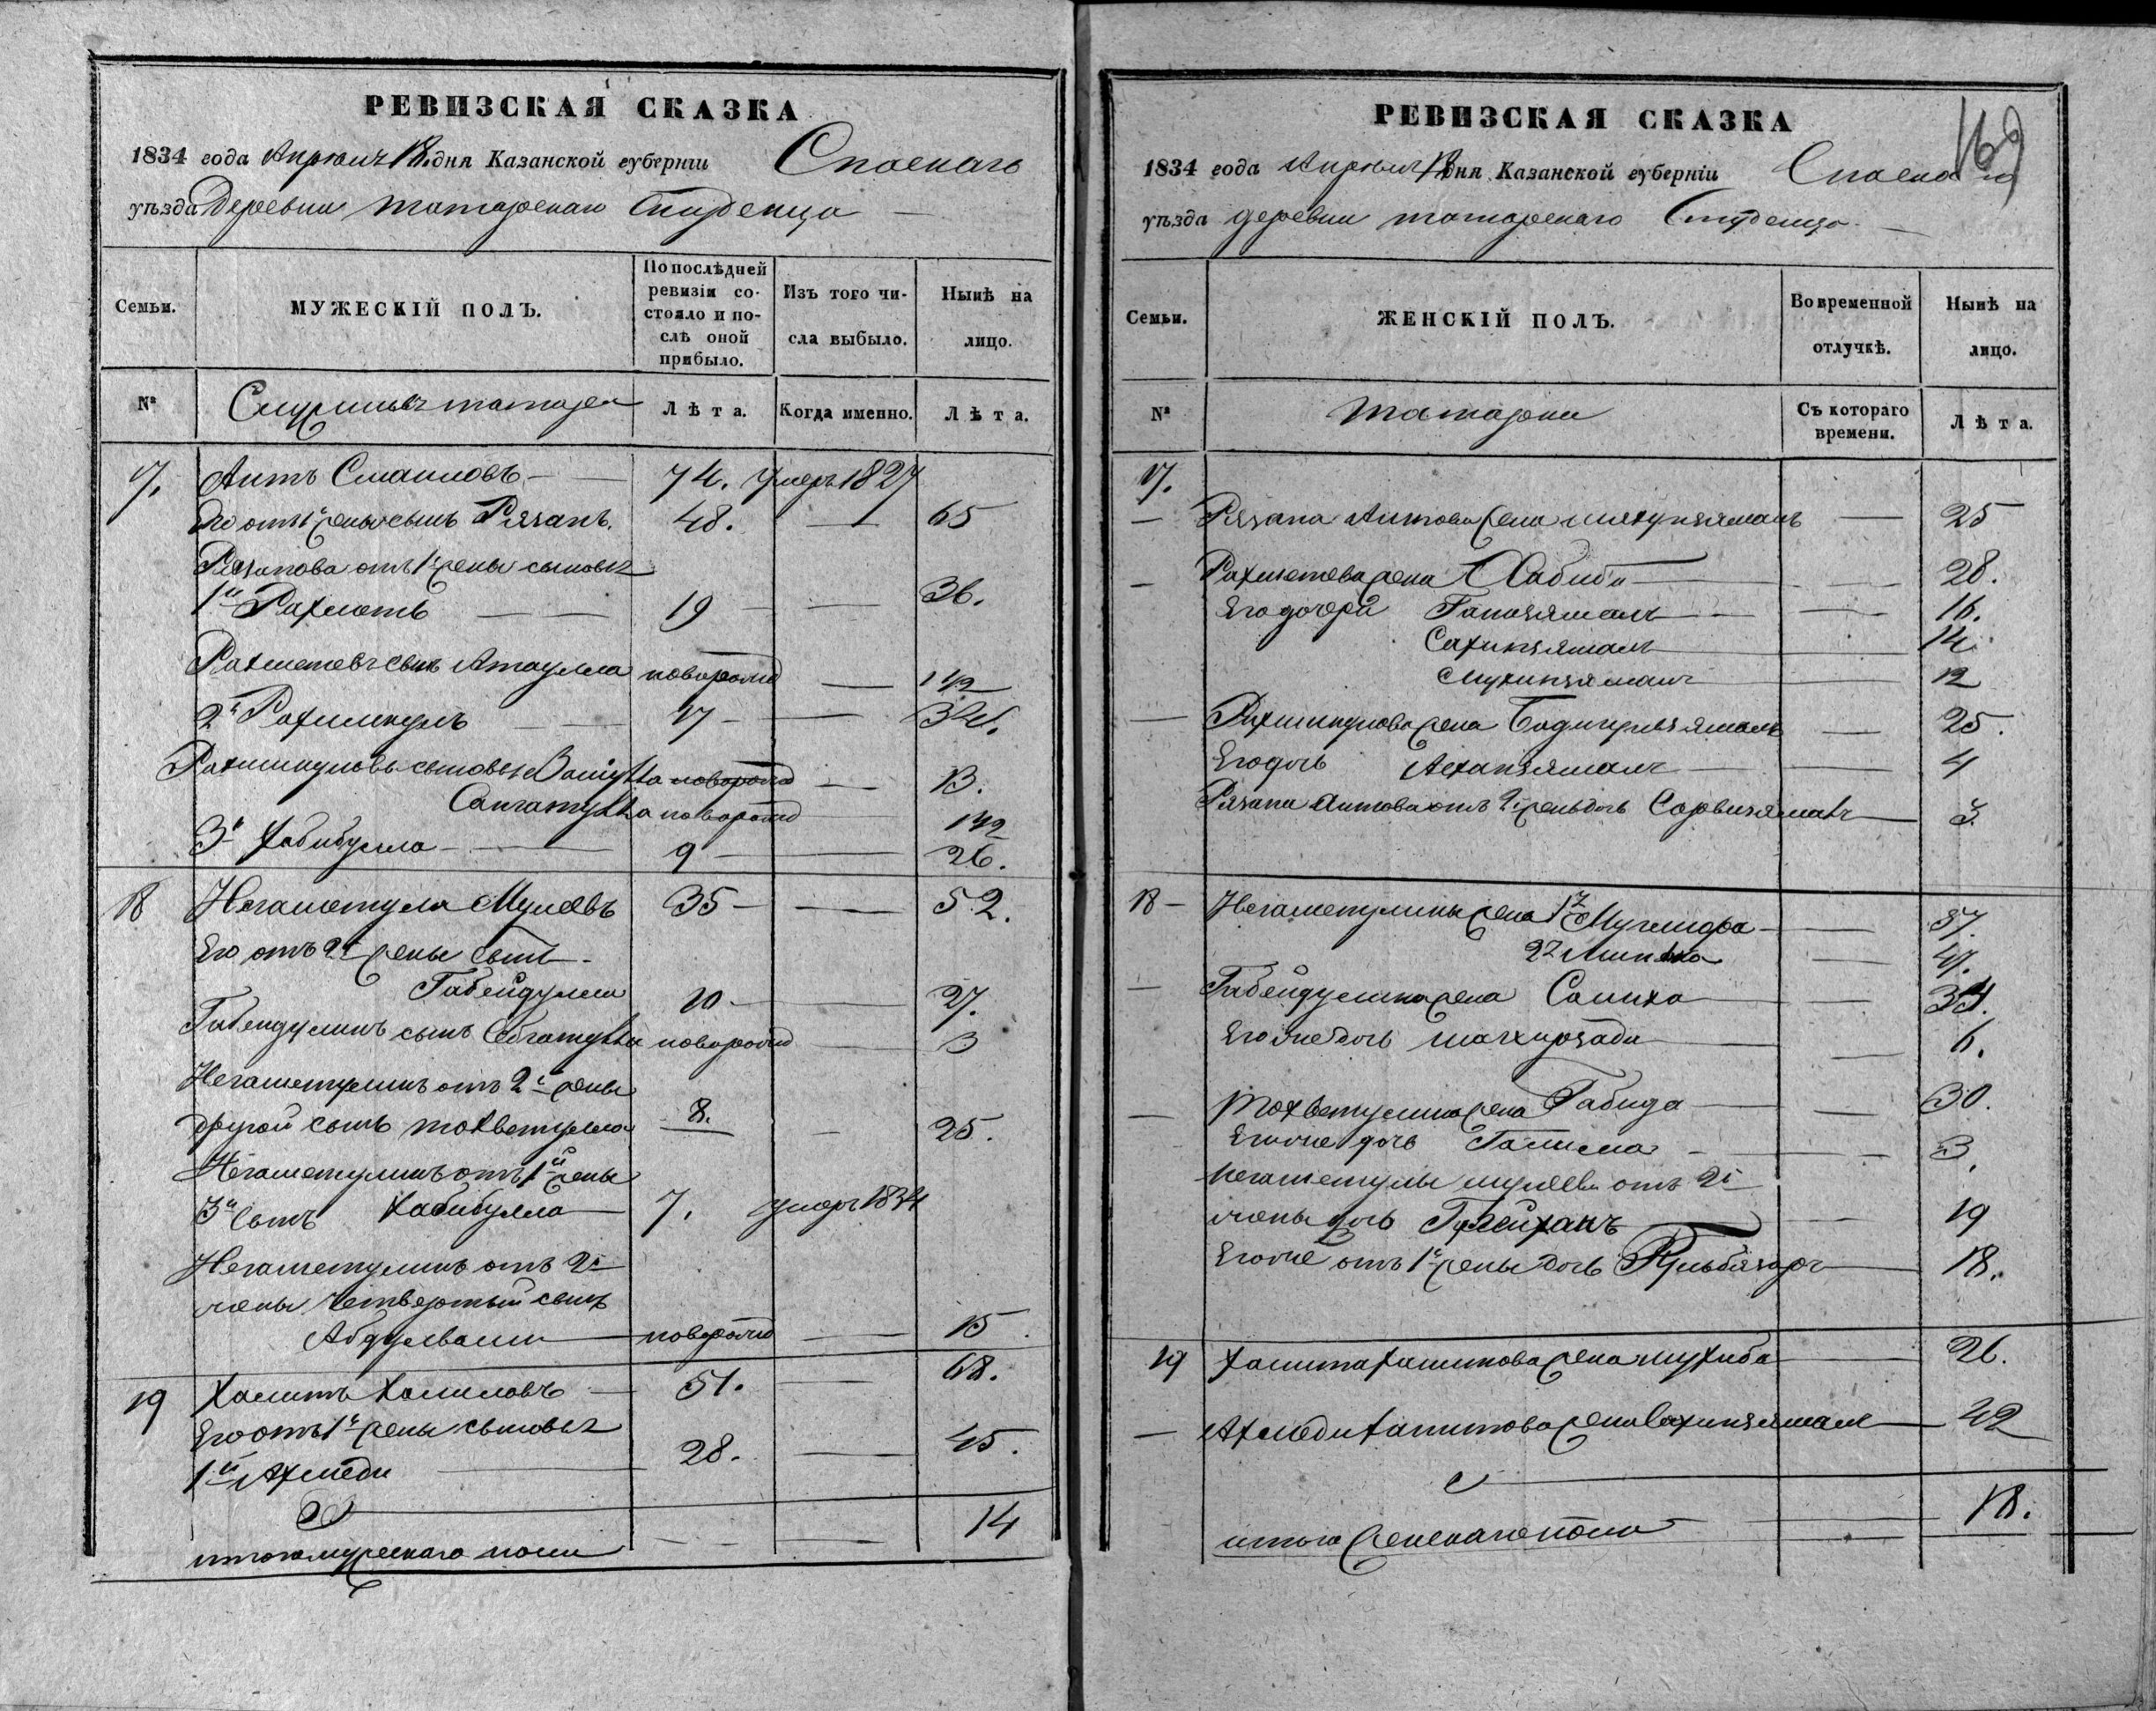 РЕВИЗСКАЯ СКАЗКА
1834 года Апреля 18. дня Казанской губерніи Спаскаго
уѣзда Деревни татарскаго Студенца
Семьи.
МУЖЕСКІЙ ПОЛЪ.
По послѣдней ревизіи состояло и послѣ оной прибыло.
Изъ того числа выбыло.
Нынѣ на лицо.
№
татаръ
Лѣта.
Когда именно.
Лѣта.
17. Аитъ Смаиловъ 74. умеръ 1827
Его отъ 1й жены сынъ Рязапъ. 48. 65
Рязапова отъ 1й жены сыновья
1й Рахметъ 19 36.
Рахметевъ сынъ Атаулла новорожд 1 1/2
2й Рахманкулъ 17 34.
Рахманкуловы сыновья новорожд 13.
новорожд 1 1/2
3й Хабибулла 9 26.
18 Негаметулла Муллеевъ 35 52.
Его отъ 2й жены сынъ
Габейдулла 10 27.
Габейдуллинъ сынъ новорожд 3
Негаметуллинъ отъ 2й жены
другой сынъ Тохветулла 8. 25.
Негаметуллинъ отъ 1й жены
3й сынъ Хабибулла 7. умеръ 1834
Негаметуллинъ отъ 2й
жены четвертый сынъ
Абдулвали новорожд 15
19 Халитъ Халиловъ 51. 68.
Его отъ 1й жены сыновья
1й Ахмеди 28. 45.
итого мужескаго пола 14
РЕВИЗСКАЯ СКАЗКА
169
1834 года Апреля 18 дня Казанской губерніи Спаскаго
уѣзда деревни татарскаго Студенца
Семьи.
ЖЕНСКІЙ ПОЛЪ.
Во временной отлучкѣ.
Нынѣ на лицо.
№
татарки
Съ котораго времени.
Лѣта.
17.
Рязапа Аитова жена 25
Рахметева жена Хабиба 28.
Его дочери 16.
Сахипзямалъ 14
Мухипзямалъ 12
Рахманкулова жена 25.
Его дочь 4
Рязапа Аитова отъ 2й жены дочь 3.
18 Негаметуллины жена 1я 57.
2я 47.
Габейдуллина жена Салиха 34.
Его же дочь 6.
Тохветуллина жена Габида 30.
Его же дочь Галима 3.
Негаметуллы Муллеева отъ 2й
жены дочь 19
Его же отъ 1й жены дочь 18.
19 Халита Халилова жена Мухиба 26.
Ахмеди Халитова жена Сахипзямалъ 42
итого женскаго пола 18.